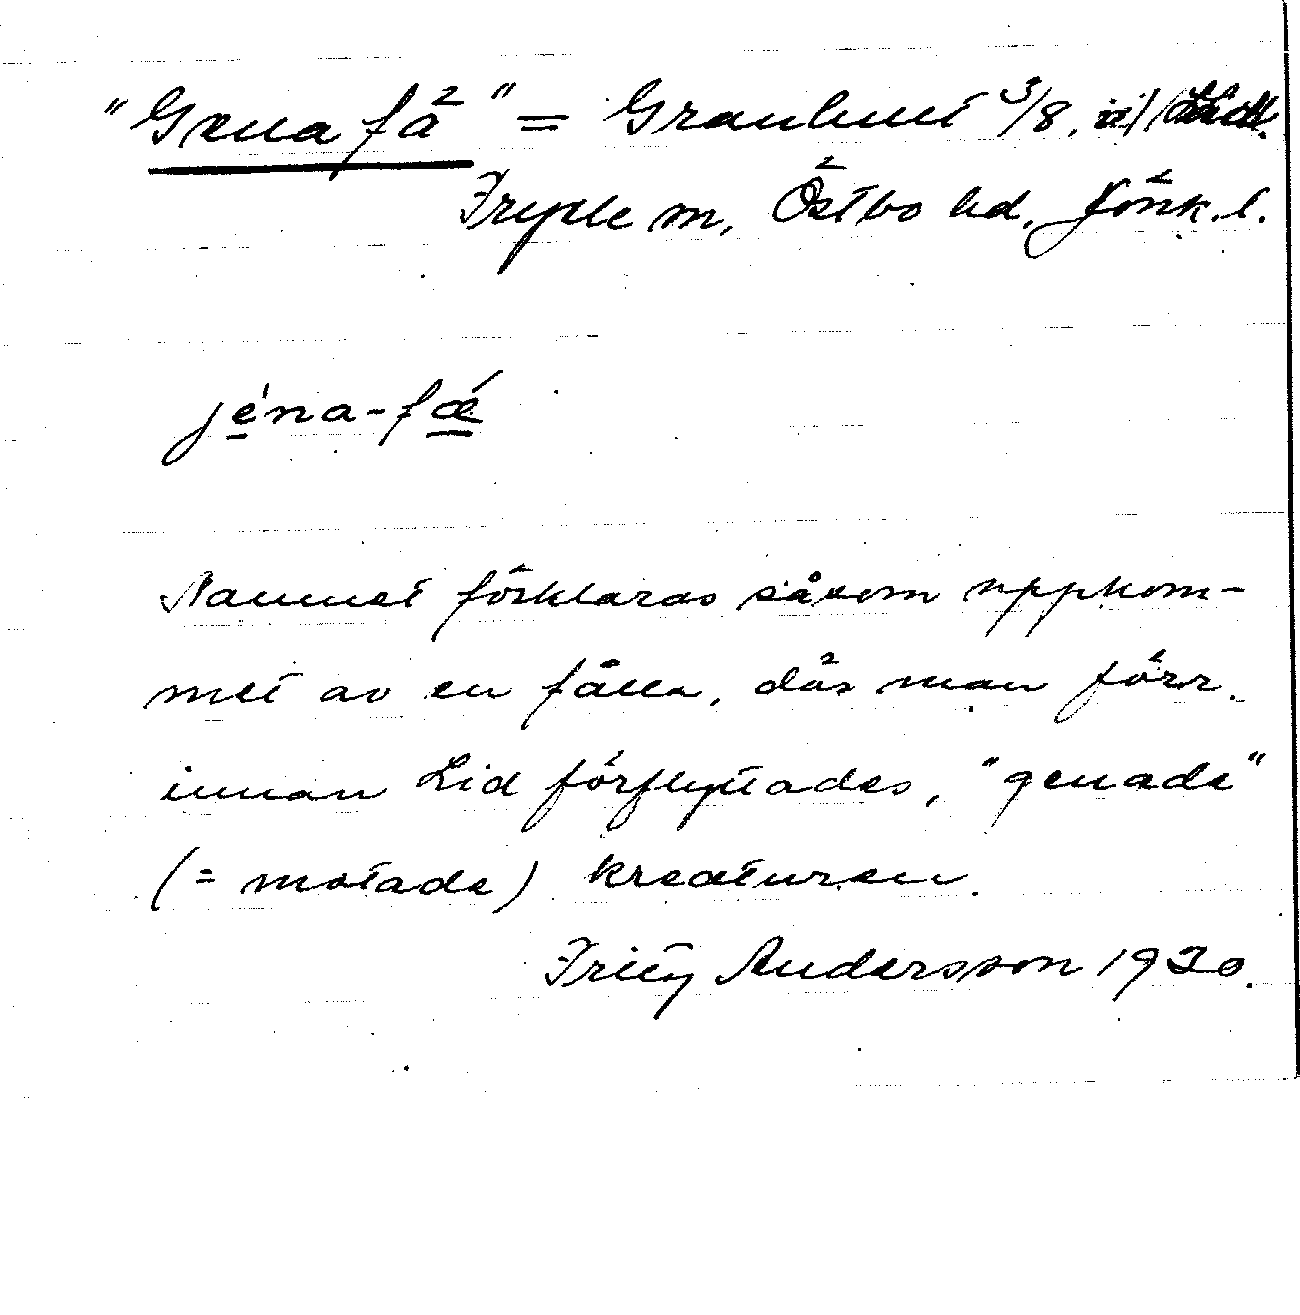 "Gena fä" = Granhult 3/8,
Fryele sn, Östbo hd. Jönk. l.
jéna-fǽ
Namnet förklaras såsom uppkom-
met av en fålla, där man förr,
innan Lid förflyttades, "genade"
(= motade) kreaturen.
Andersson 1930.